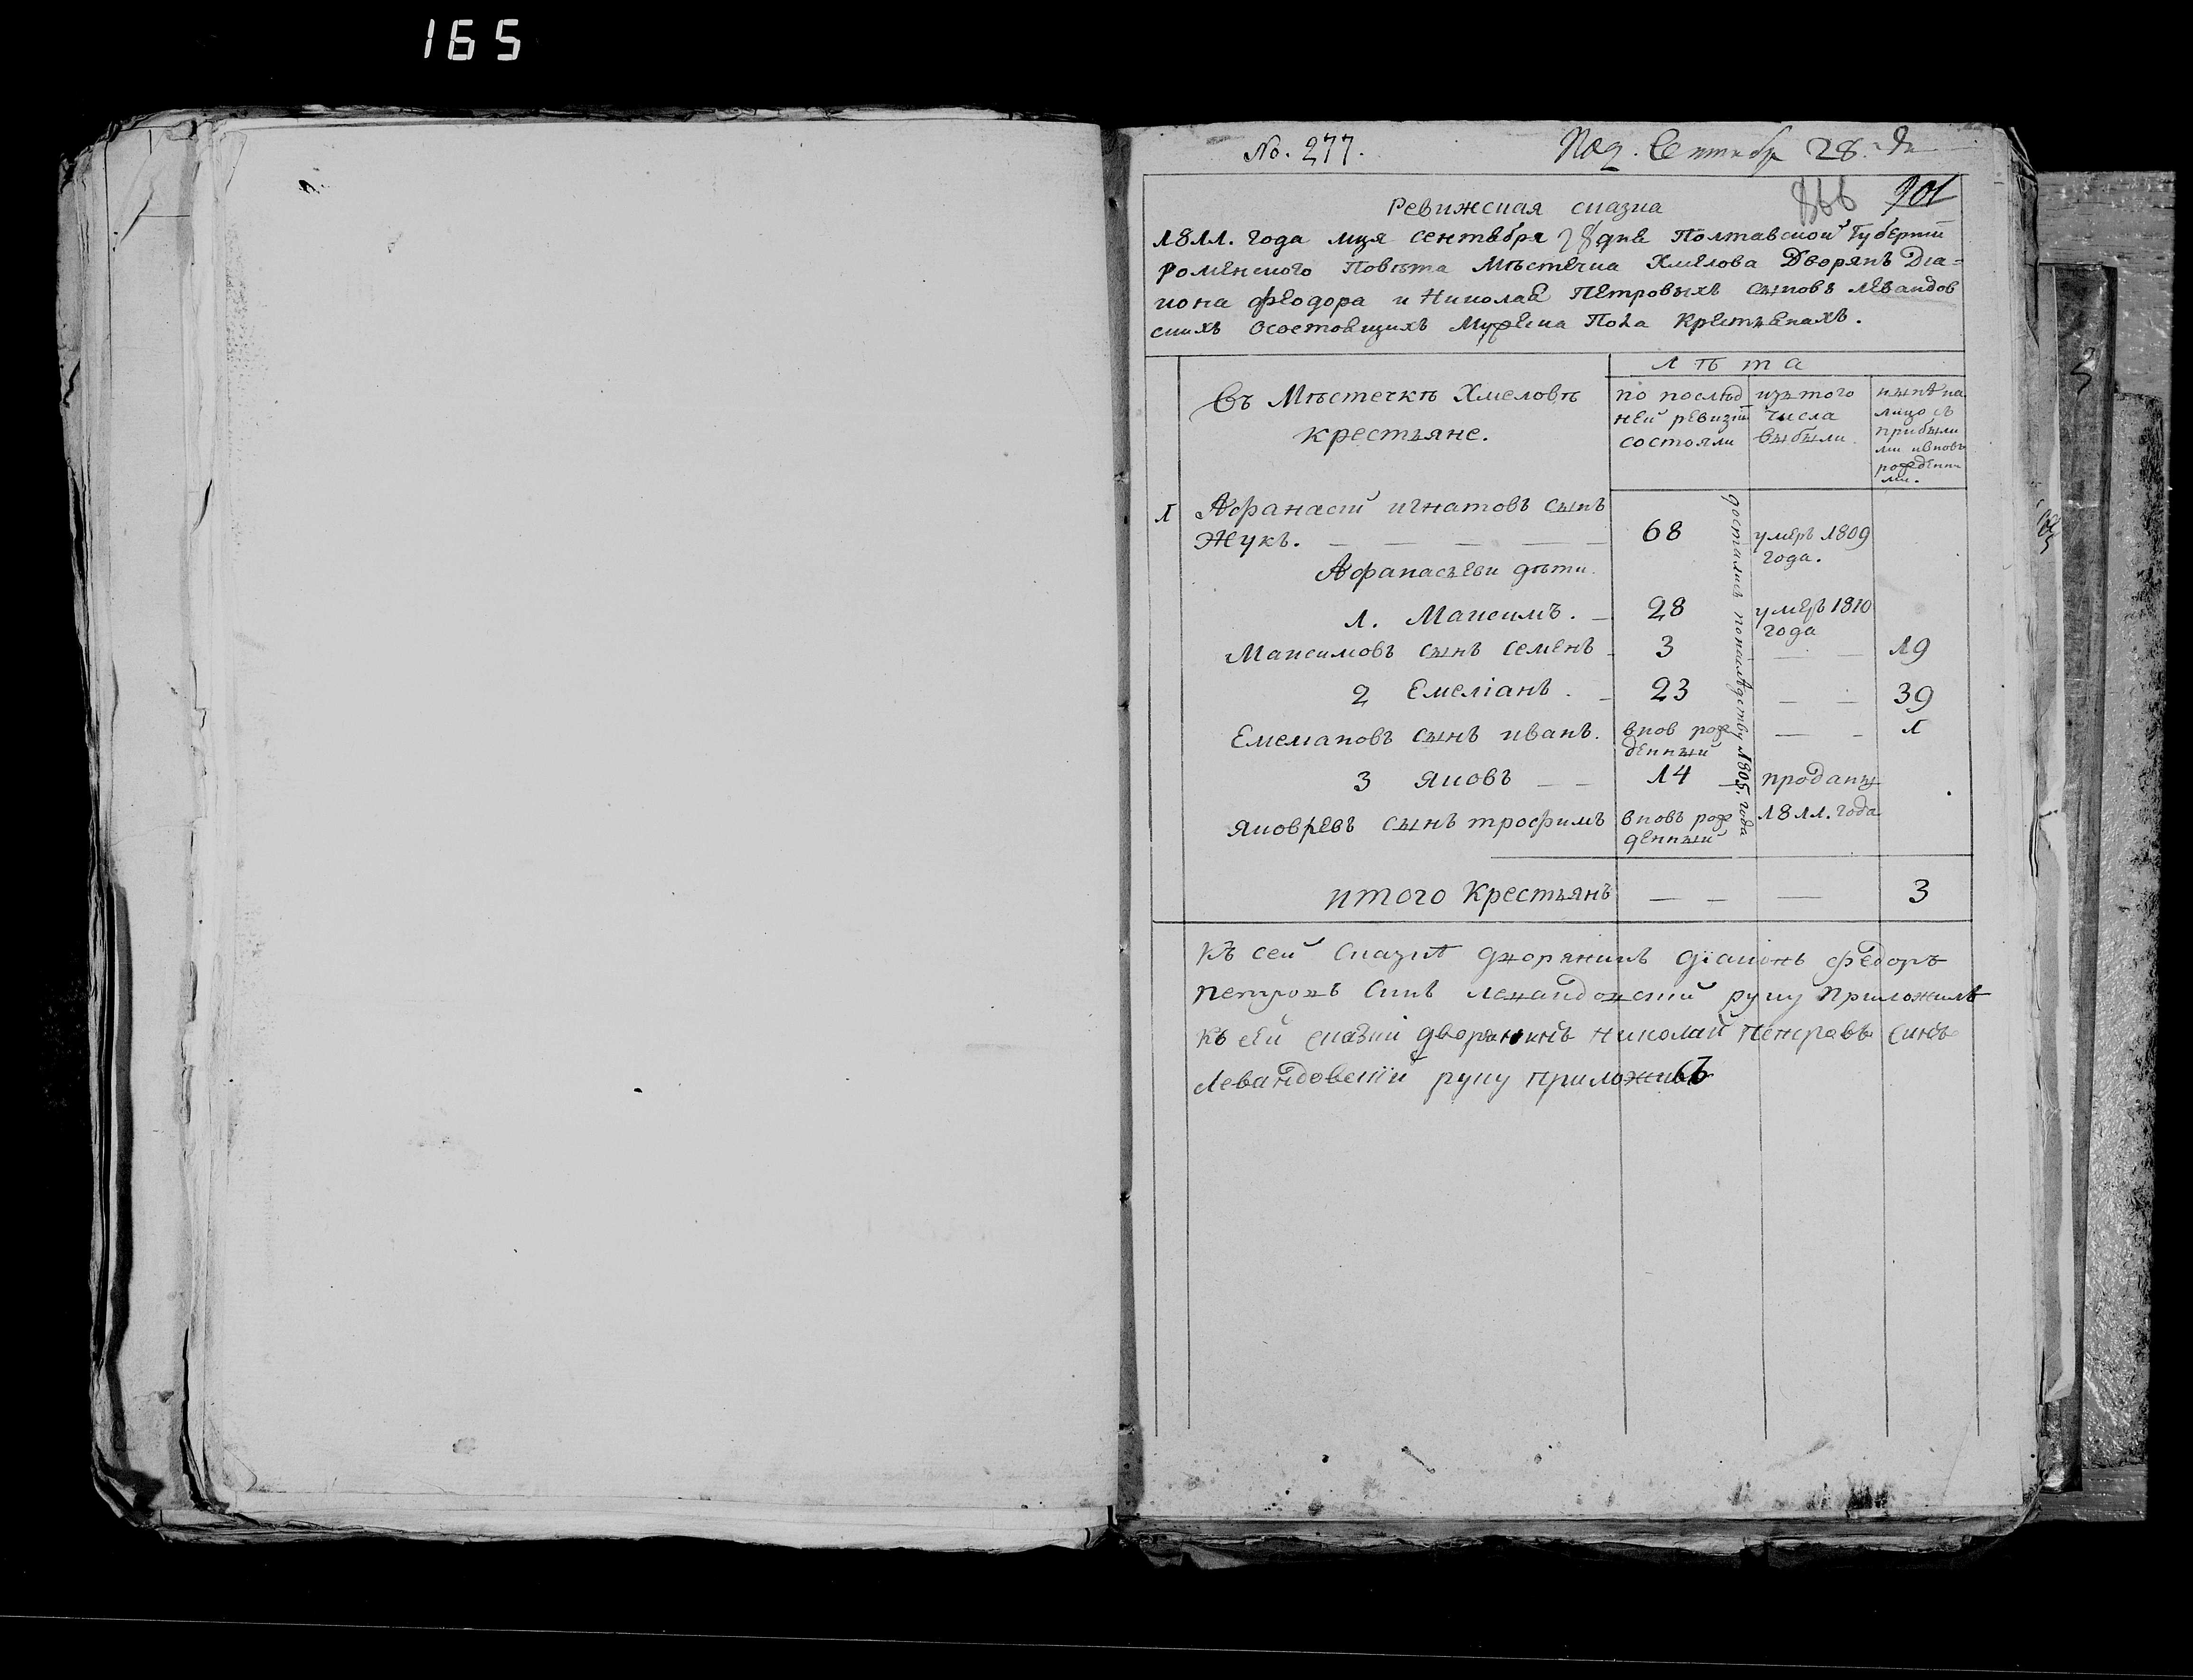 165
No. 277.
Под. Сентября 28. дн
866 901
Ревижская сказка
1811. года мця сентября 28 дня Полтавской Губернїи
роменского Повѣта Мѣстечка Хмелова Дворянъ Дїа=
кона феодора и Николая Петровыхъ сыновъ левандов
скихъ осостоящихъ Мужеска Пола Крестьянахъ.
лѣта
Въ Мѣстечкѣ Хмеловѣ
крестьяне.
по послѣд
ней ревизїи
состояли
изъ того
числа
выбыли
нынѣ на
лицо съ
прибыли
ми ивновь
рожденни
ми.
достались понаслѣдству 1805. года
1 Афанасїй игнатовъ сынъ
Жукъ. — — — — — 68 умеръ 1809
года.
Афанасьеви дѣти.
1. Максимъ. — 28 умеръ 1810
года
Максимовъ сынъ семенъ 3 — — 19
2 Емелїанъ. — 23 — — 39
Емелїановъ сынъ иванъ. внов рож
денный — — 1
3 яковъ — — 14 проданы
яковлевъ сынъ трофимъ вновь рож
денный 1811. года
итого Крестьянъ — — — 3
Къ сей Сказкѣ дворянинъ дїаконъ федоръ
петровъ Синъ левандовский руку приложилъ
Къ сей сказки дворянинъ николай петровъ синъ
левандовскїй руку приложивъ